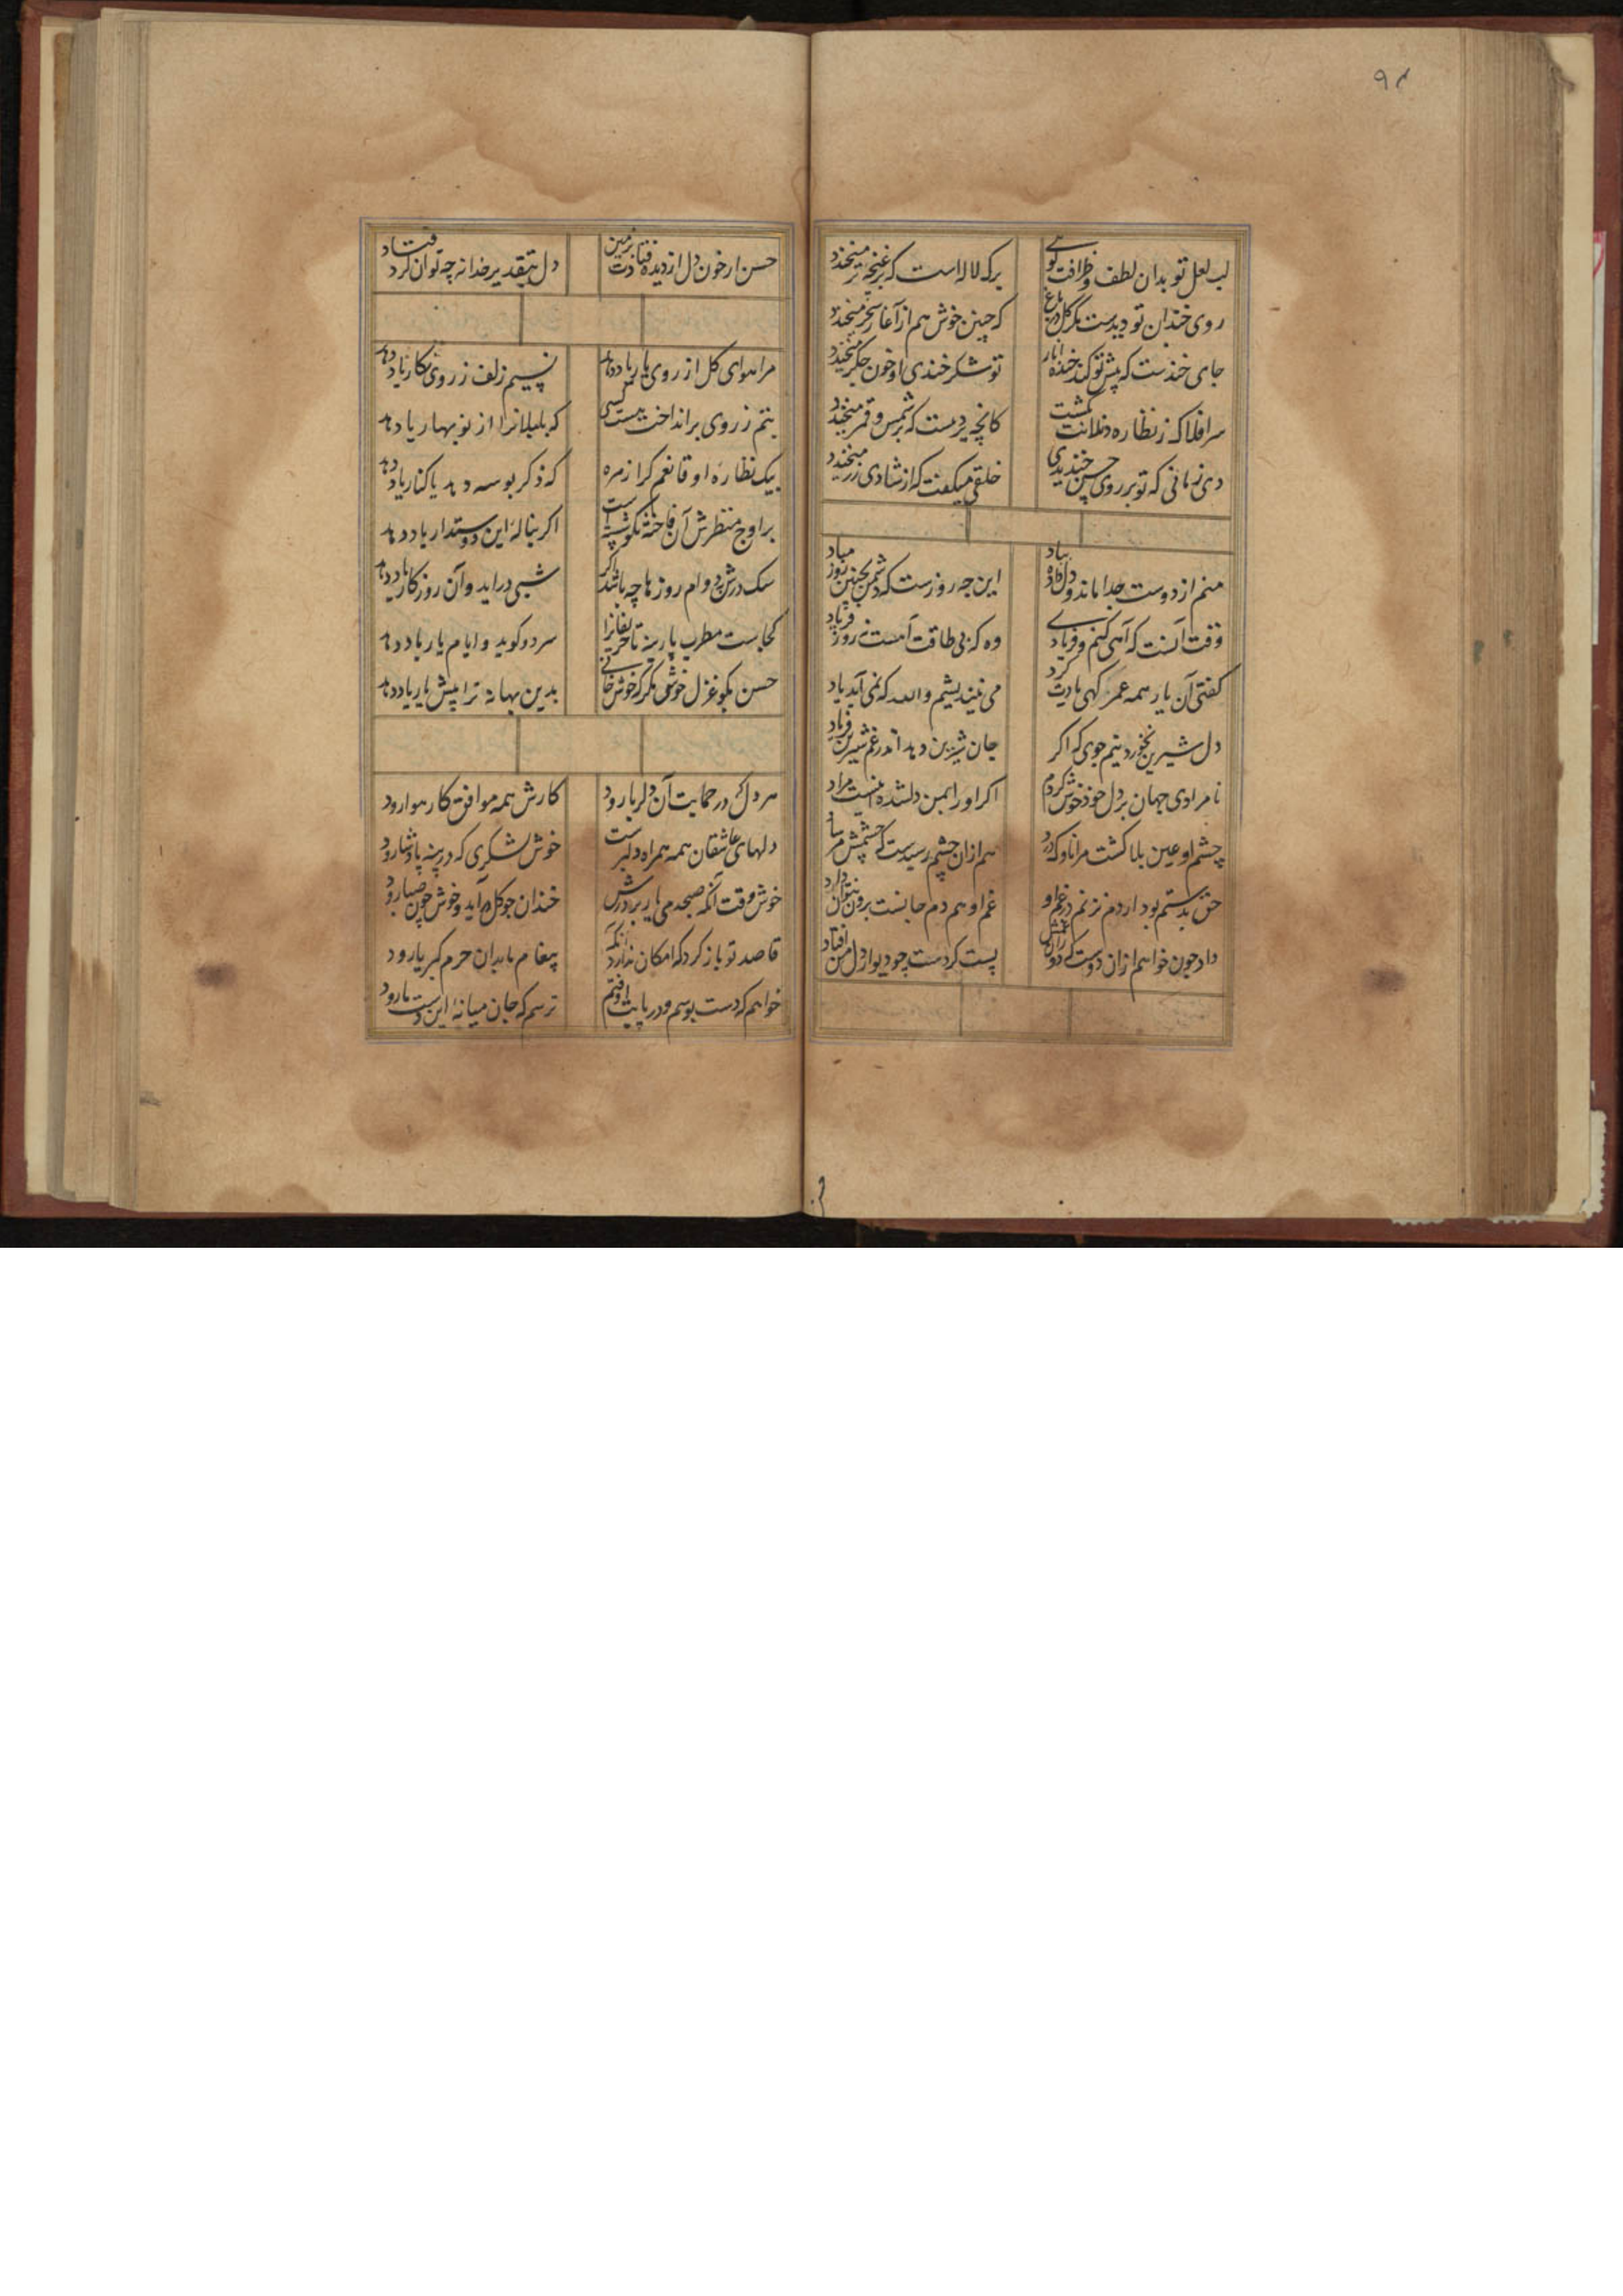 ۹۴
لب لعل تو بدان لطف و ظرافت گویی
برک لاله است که بر غنچه تر میخندد
روی خندان تو دیدست مگر گل در باغ
که چنین خوش هم از آغاز سحر میخندد
جای خندست که پیش تو کند خنده انار
تو شکر خندی او خون جگر میخندد
سر افلاک ز نظاره دندانت گشت
کانچه پردست که بر شمس و قمر میخندد
دی زمانی که تو بر روی حسن خندیدی
خلقی میگفت که از شادی زر میخندد
منم از دوست جدا مانده و دل داده بباد
این چه روزست که دشمن بچنین روز مباد
وقت آنست که آهی کنم و فریادی
وه که بی طاقت آمست روز فریاد
گفتی آن یار همه عمر گهی یادت کرد
می نیندیشم والله که نمی آید یاد
دل شیرین نخورد نیم جوی که اگر
جان شیرین دهد اندر غم شیرین فرهاد
نامرادی جهان بر دل خود خوش کردم
اگر او را بمن دلشده اینست مراد
چشم او عین بلا گشت مرا ناوک زد
هم ازان چشم رسیدست که چشمش مرساد
حق بدستم بود ار دم نزنم در غم او
غم او همدم جانست برون نتوان داد
داد چون خواهم ازان دوست که دوران غمش
پست کردست چو دیوار دل من افتاد
حسن ار خون دل از دیده فتادت بزمین
دل بتقدیر خدا نه چه توان کرد فتاد
مرا هوای گل از روی یار یاد دهد
نسیم زلف ز روی نگار یاد دهد
بتم ز روی برانداخت نیست کسی
که بلبلانرا از نوبهار یاد دهد
بیک نظاره او قانعم کرا زهره
که ذکر بوسه دهد یا کنار یاد دهد
بر اوج منظرش آن فاخته نکو بنشست
اگر بناله این دوستدار یاد دهد
سک درش بدوام روزها چه باشد اگر
شبی دراید وآن روزگار یاد دهد
کجاست مطرب پارینه تا حریفانرا
سرود گوید و ایام یار یاد دهد
حسن بگو غزل خوش مگر که خوش خوانی
بدین بهانه ترا پیش یار یاد دهد
هر دل که در حمایت آن دلربا رود
کارش همه موافق کار هوا رود
دلهای عاشقان همه همراه دلبرست
خوش لشکری که در پی پادشا رود
خوش وقت آنکه صبحدمی یار بر درش
خندان چو گل آید و خوش چون صبا رود
قاصد تو باز گرد که امکان ندارد آنکه
پیغام ما بدان حرم کبریا رود
خواهم که دست بوسم و در پایت اوفتم
ترسم که جان میانه این دست ما رود